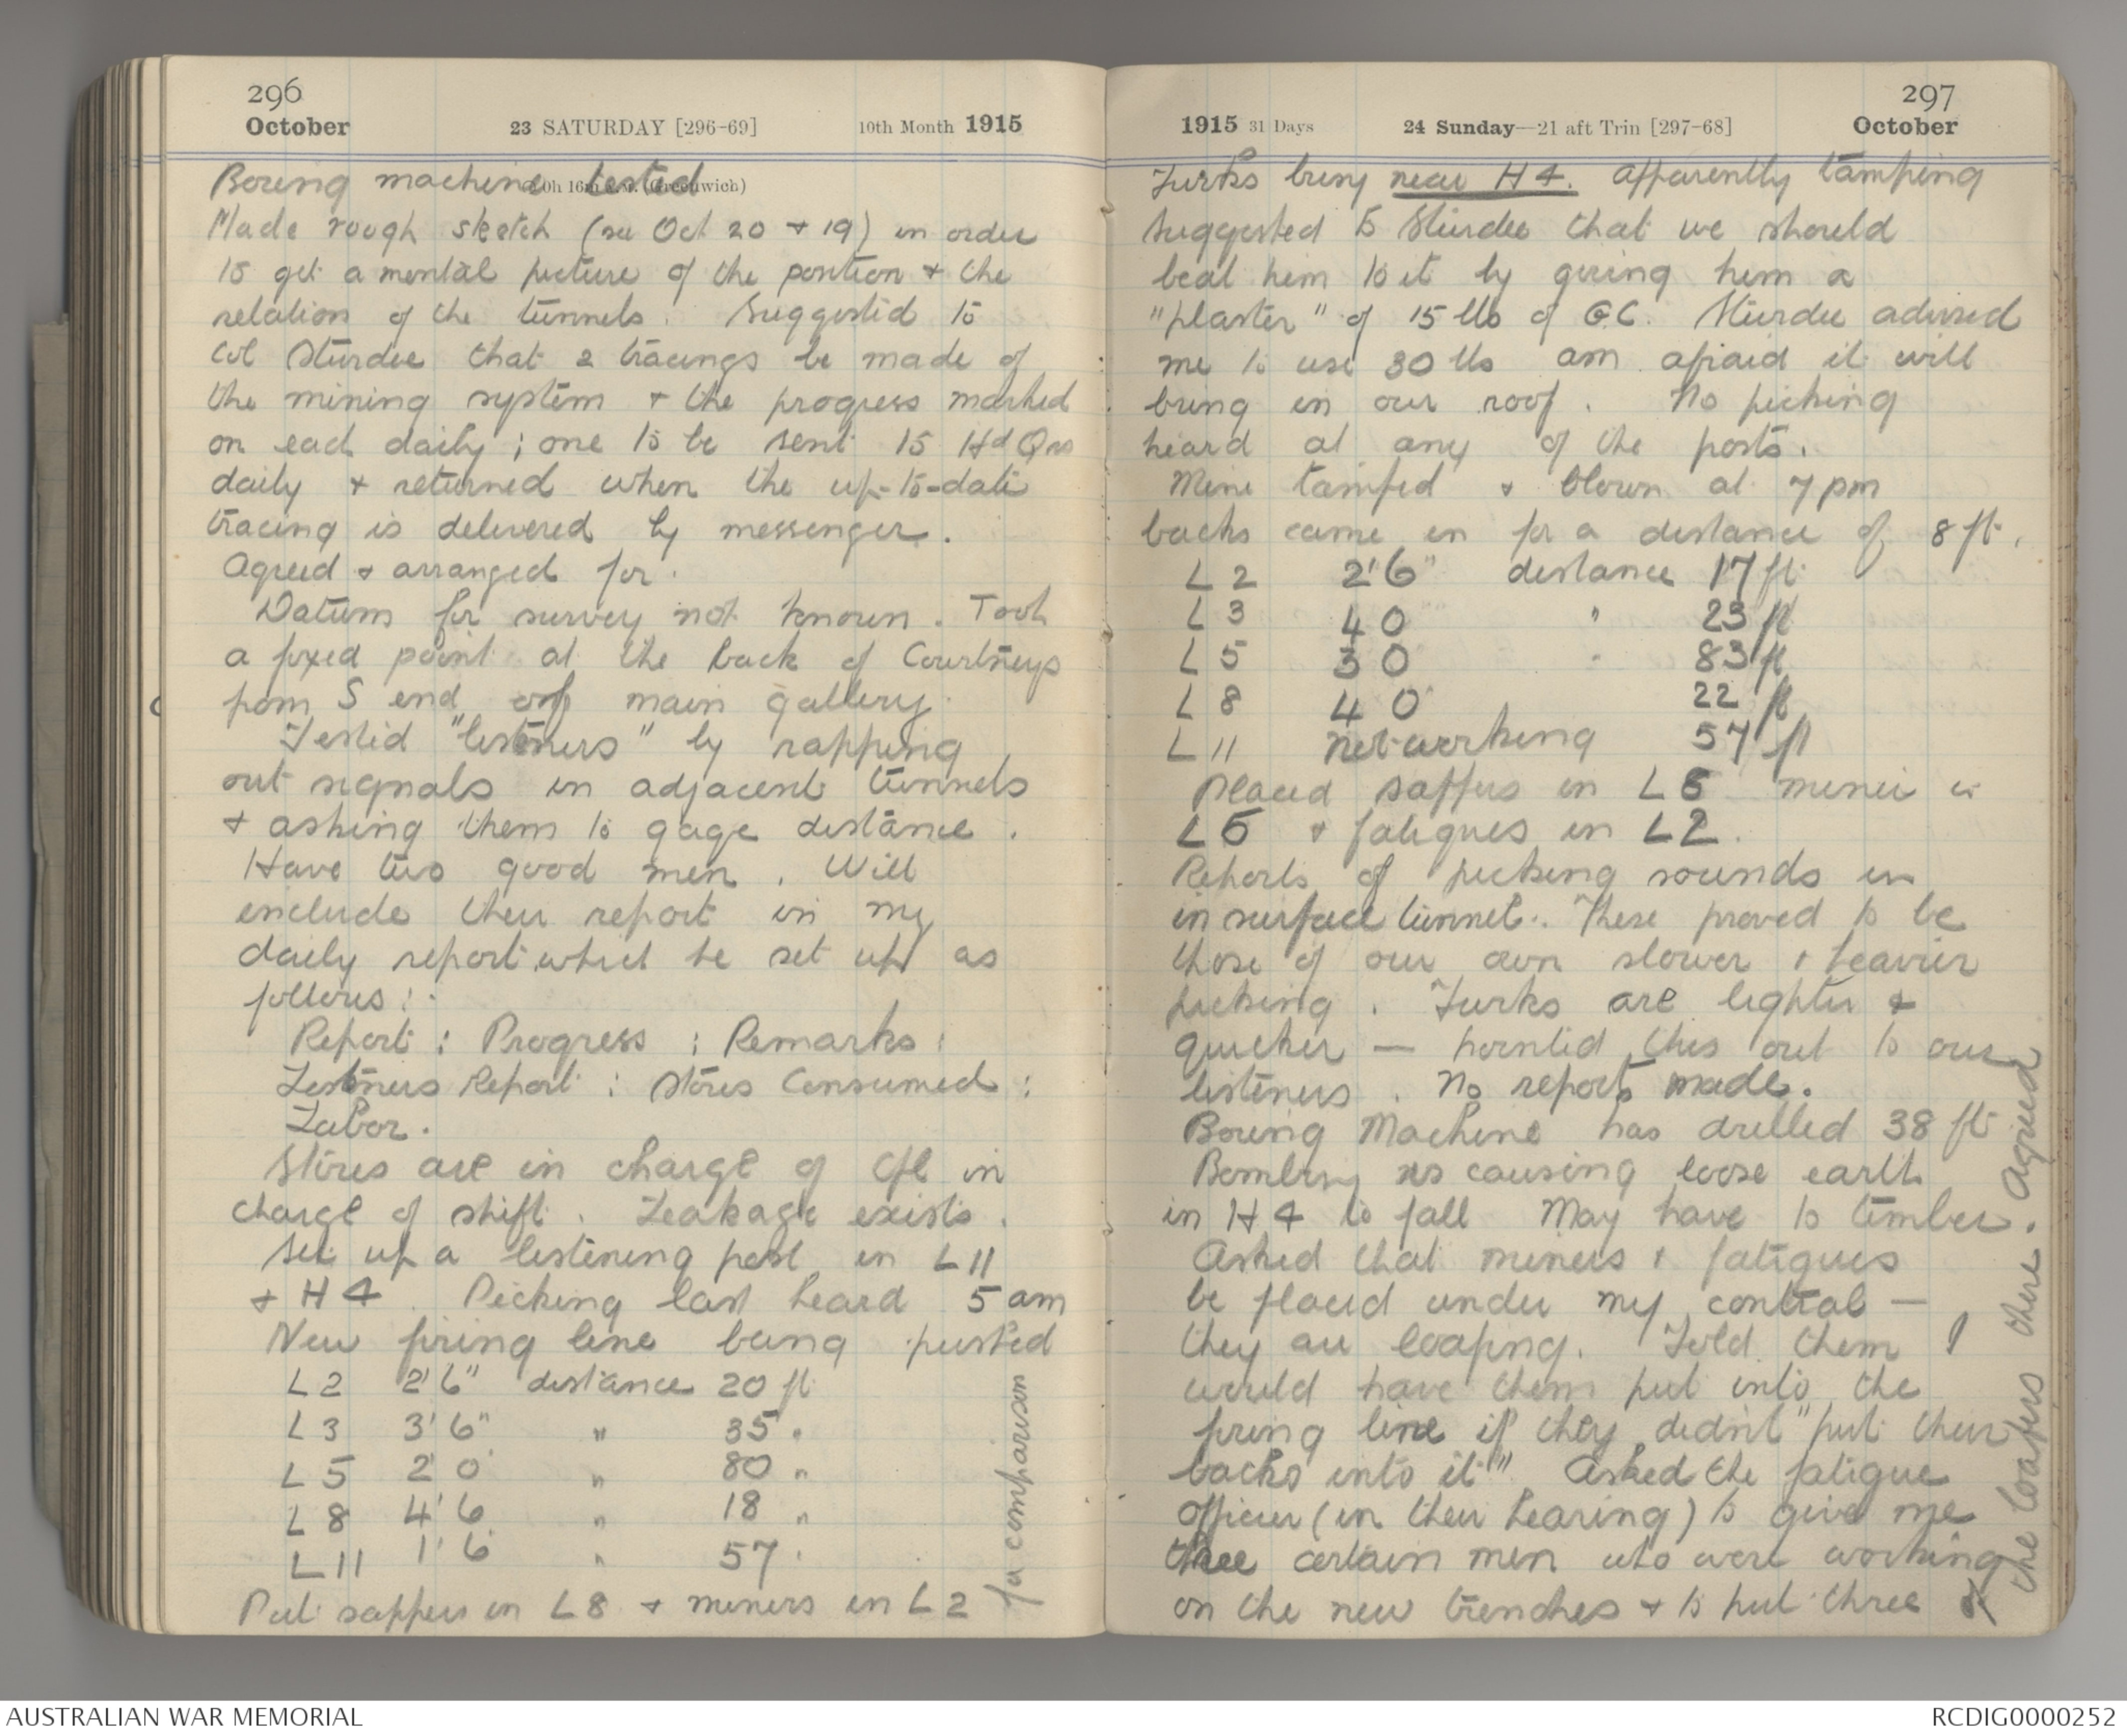 296
October 23 SATURDAY [296-69] 10th Month 1915
Boring machine tested
(Greenwich)
Made rough sketch (see Oct 20 + 19) in order
to get a mental picture of the position + the
relation of the tunnels. Suggested to
Col Sturdee that 2 tracings be made of
the mining system + the progress marked
on each daily; one to be sent to Hd Qrs
daily + returned when the up-to-date
tracing is delivered by messenger.
Agreed + arranged for.
Datum for survey not known. Took
a fixed point at the back of Courtneys
from S end of main gallery.
Tested "listeners" by rapping
out signals in adjacent tunnels
+ asking them to gage distance.
Have two good men. Will
include their report in my
daily report which be set up as
follows:-
Report : Progress : Remarks :
Listeners Report : Stores Consumed :
Labor.
Stores are in charge of Cpl in
charge of shift. Leakage exists.
Set up a listening post in L11
+ H4. Picking last heard 5 am
New firing line being pushed
L2 2'6" distance 20 ft
L3 3'6" " 35 "
L5 2'0 " 80 "
L8 4'6 " 18 "
L11 1'6 " 57 "
Put sappers in L8 + miners in L2
for comparison
297
1915 31 Days 24 Sunday—21 aft Trin [297-68] October
Turks busy near H4. apparently tamping
Suggested to Sturdee that we should
beat him to it by giving him a
"plaster" of 15 lbs of G.C. Sturdee advised
me to use 30 lbs am afraid it will
bring in our roof. No picking
heard at any of the posts.
Mine tamped + blown at 7 pm
backs came in for a distance of 8 ft.
L2 2'6" distance 17 ft
L3 4 0 " 23 ft
L5 3 0 " 83 ft
L8 4 0 22 ft
L11 not working 57 ft
Placed sappers in L8 miners in
L5 + fatigues in L2.
Reports of picking sounds in
in surface tunnel. These proved to be
those of our own slower + heavier
picking. Turks are lighter +
quicker — pointed this out to our
listeners. No reports made.
Boring Machine has drilled 38 ft
Bombing is causing loose earth
in H4 to fall May have to timber.
Asked that miners + fatigues
be placed under my control —
they are loafing. Told them I
would have them put into the
firing line if they didn't "put their
backs into it" Asked the fatigue
officer (in their hearing) to give me
three certain men who were working
on the new trenches + to put three of
the loafers there Agreed
AUSTRALIAN WAR MEMORIAL RCDIG0000252